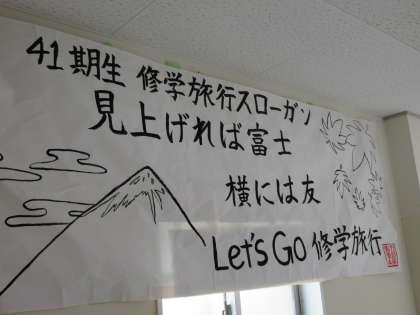 41期生 修学旅行スローガン
見上げれば富士
横には友
Let's Go 修学旅行